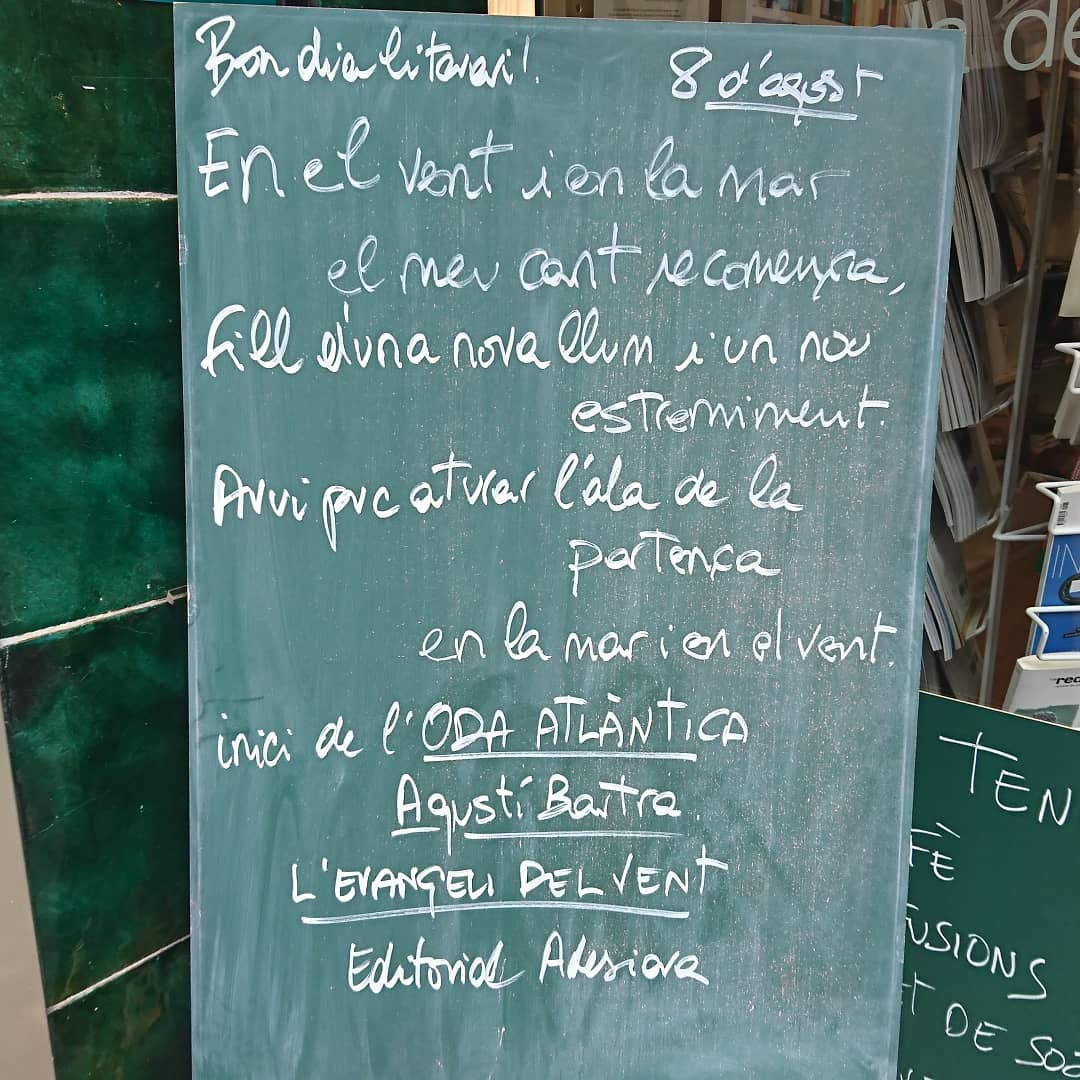 Bon dia literari!
8 d'agost
En el vent i en la mar
el meu cant recomença,
fill d'una nova llum i un nou
estremiment.
Avui puc aturar l'ala de la
partença
en la mar i en el vent.
inici de l'ODA ATLÀNTICA
Agustí Bartra.
L'EVANGELI DEL VENT
Editorial Adesiara
de
TEN
FÈ
FUSIONS
T DE SOJ